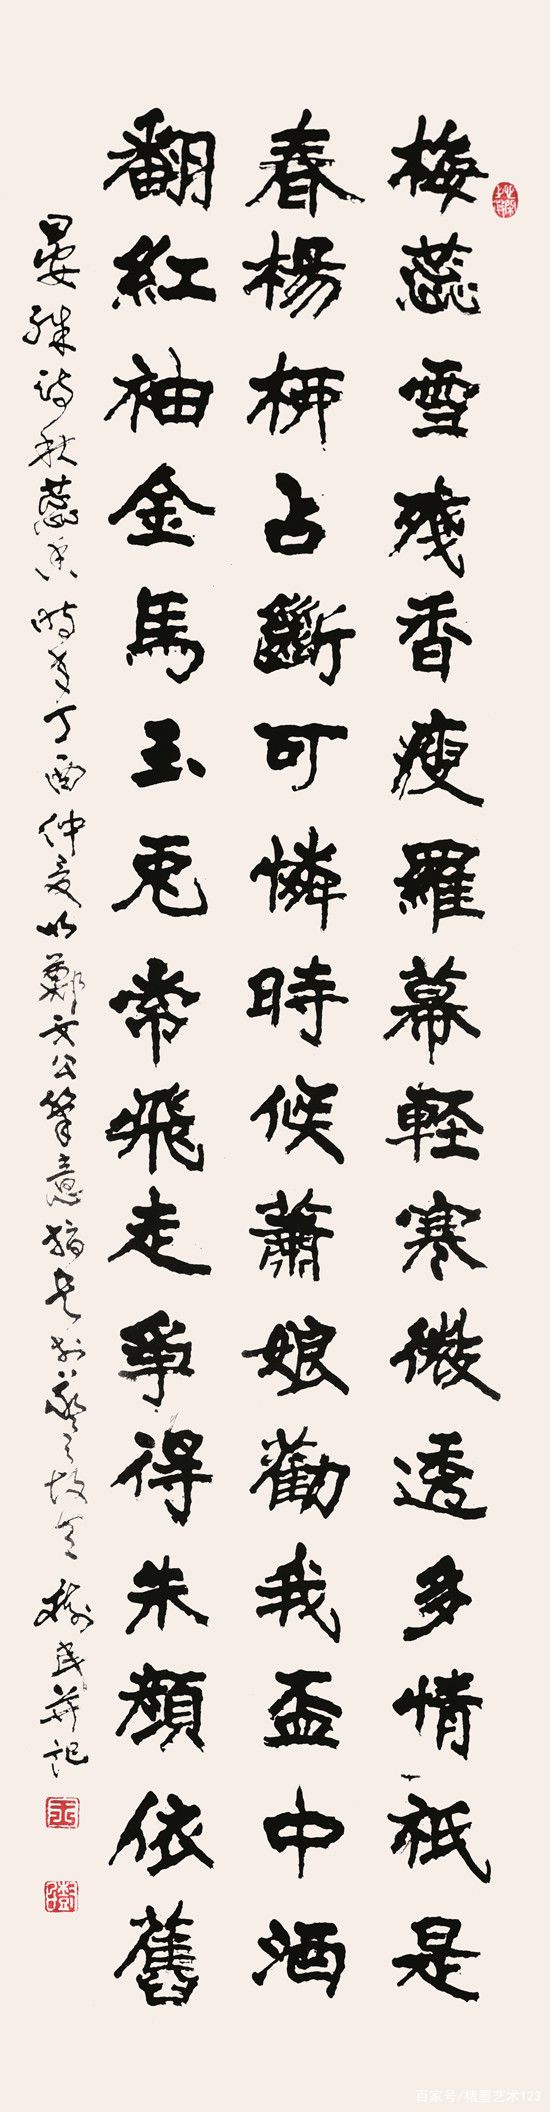 梅蕊雪殘香瘦羅幕輕寒微透多情祇是
春楊柳占斷可憐時候蕭娘勸我盃中酒
翻紅袖金馬玉兎常飛走爭得朱顏依舊
晏殊詩秋蕊香時在丁酉仲夏以鄭文公筆意 樹民并記
百家号/精墨艺术123